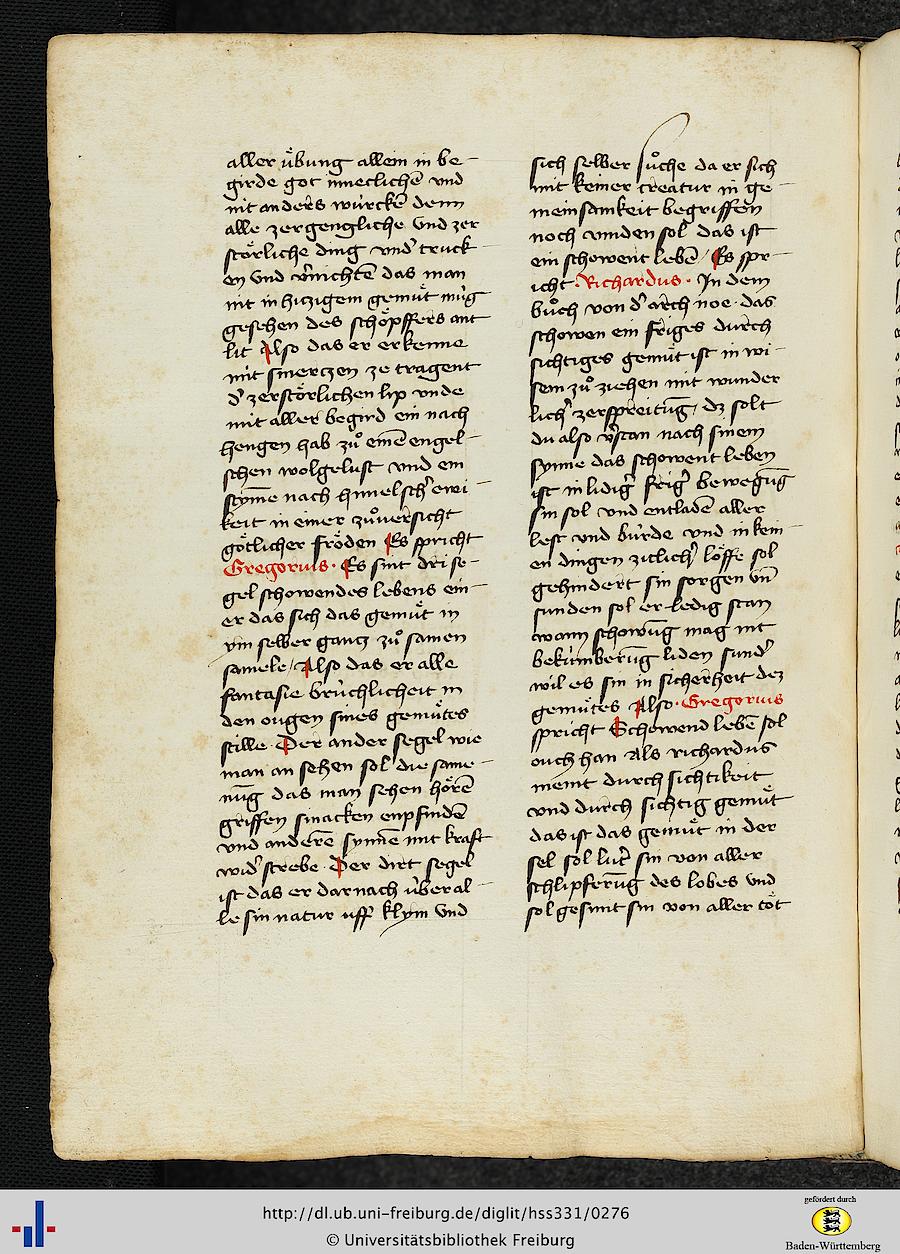 aller uͤbung allein in be-
girde got inneclichē vnd
nit anders wuͤrckē denn
alle zergengliche vnd zer
stoͤrliche ding vnd' truck
en vnd v'nichtē das man
nit in hiczigem gemuͤt muͤg
gesehen des schoͤpffers ant
lit Also das er erkenne
mit smerczen ze tragent
d' zerstoͤrlichen lip vnde
mit aller begird ein nach
hengen hab zuͦ einē engel-
schen wolgelust vnd ein
stȳme nach himelsch' ewi-
keit in einer zuͦversicht
goͤtlicher froͤden Es spricht
Gregorius · Es sint dri se-
gel schowendes lebens ein-
er das sich das gemuͤt in
ym selber gantz zuͦ samen
samele / Also das er alle
fantasie bruͤchlicheit in
den ougen sines gemuͤtes
stille · Der ander segel wie
man an sehen sol die same-
nūg das man sehen hoͤrē
griffen smacken enpfindē
vnd anderē synnē mit kraft
wid' strebe · Der dirt segel
ist das er darnach uͤberal-
le sin natur uff klym vnd
sich selber suͦche da er sich
mit keiner creatur in ge-
meinsamkeit begriffen
noch vinden sol das ist
ein schowent lebē / Es spr-
icht · Richardus · In dem
buͦch von d' arch noe · das
schowen ein friges durch
sichtiges gemuͤt ist in wi-
sem zuͦ ziehen mit wunder
lich' zerspreitūg / dz solt
du also v'stan nach sinem
synne das schowent leben
ist in lidig' frig' bewegūg
sin sol vnd entladē aller
lest vnd buͤrde vnd in kein-
en dingen zitlich' loͤffe sol
gehindert sin sorgen vn̄
sunden sol er ledig stan
wann schowūg mag nit
bekuͤmberūg liden sund'
wil es sin in sicherheit dez
gemuͤtes Also · Gregorius
spricht Schowend lebē sol
ouch han Als richardus
meint durch sichtikeit
vnd durch sichtig gemuͤt
das ist das gemuͤt in der
sel sol lut' sin von aller
schlipferūg des lobes vnd
sol gesunt sin von aller toͤt
http://dl.ub.uni-freiburg.de/diglit/hss331/0276
© Universitätsbibliothek Freiburg
gefördert durch
Baden-Württemberg